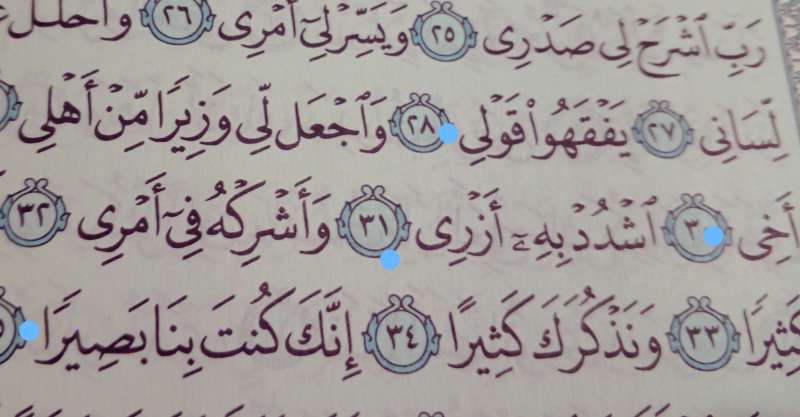 رَبِّ ٱشْرَحْ لِى صَدْرِى ٢٥ وَيَسِّرْ لِىٓ أَمْرِى ٢٦ وَٱحْلُلْ
لِّسَانِى ٢٧ يَفْقَهُوا۟ قَوْلِى ٢٨ وَٱجْعَل لِّى وَزِيرًا مِّنْ أَهْلِى
أَخِى ٣٠ ٱشْدُدْ بِهِۦٓ أَزْرِى ٣١ وَأَشْرِكْهُ فِىٓ أَمْرِى ٣٢
كَثِيرًا ٣٣ وَنَذْكُرَكَ كَثِيرًا ٣٤ إِنَّكَ كُنتَ بِنَا بَصِيرًا